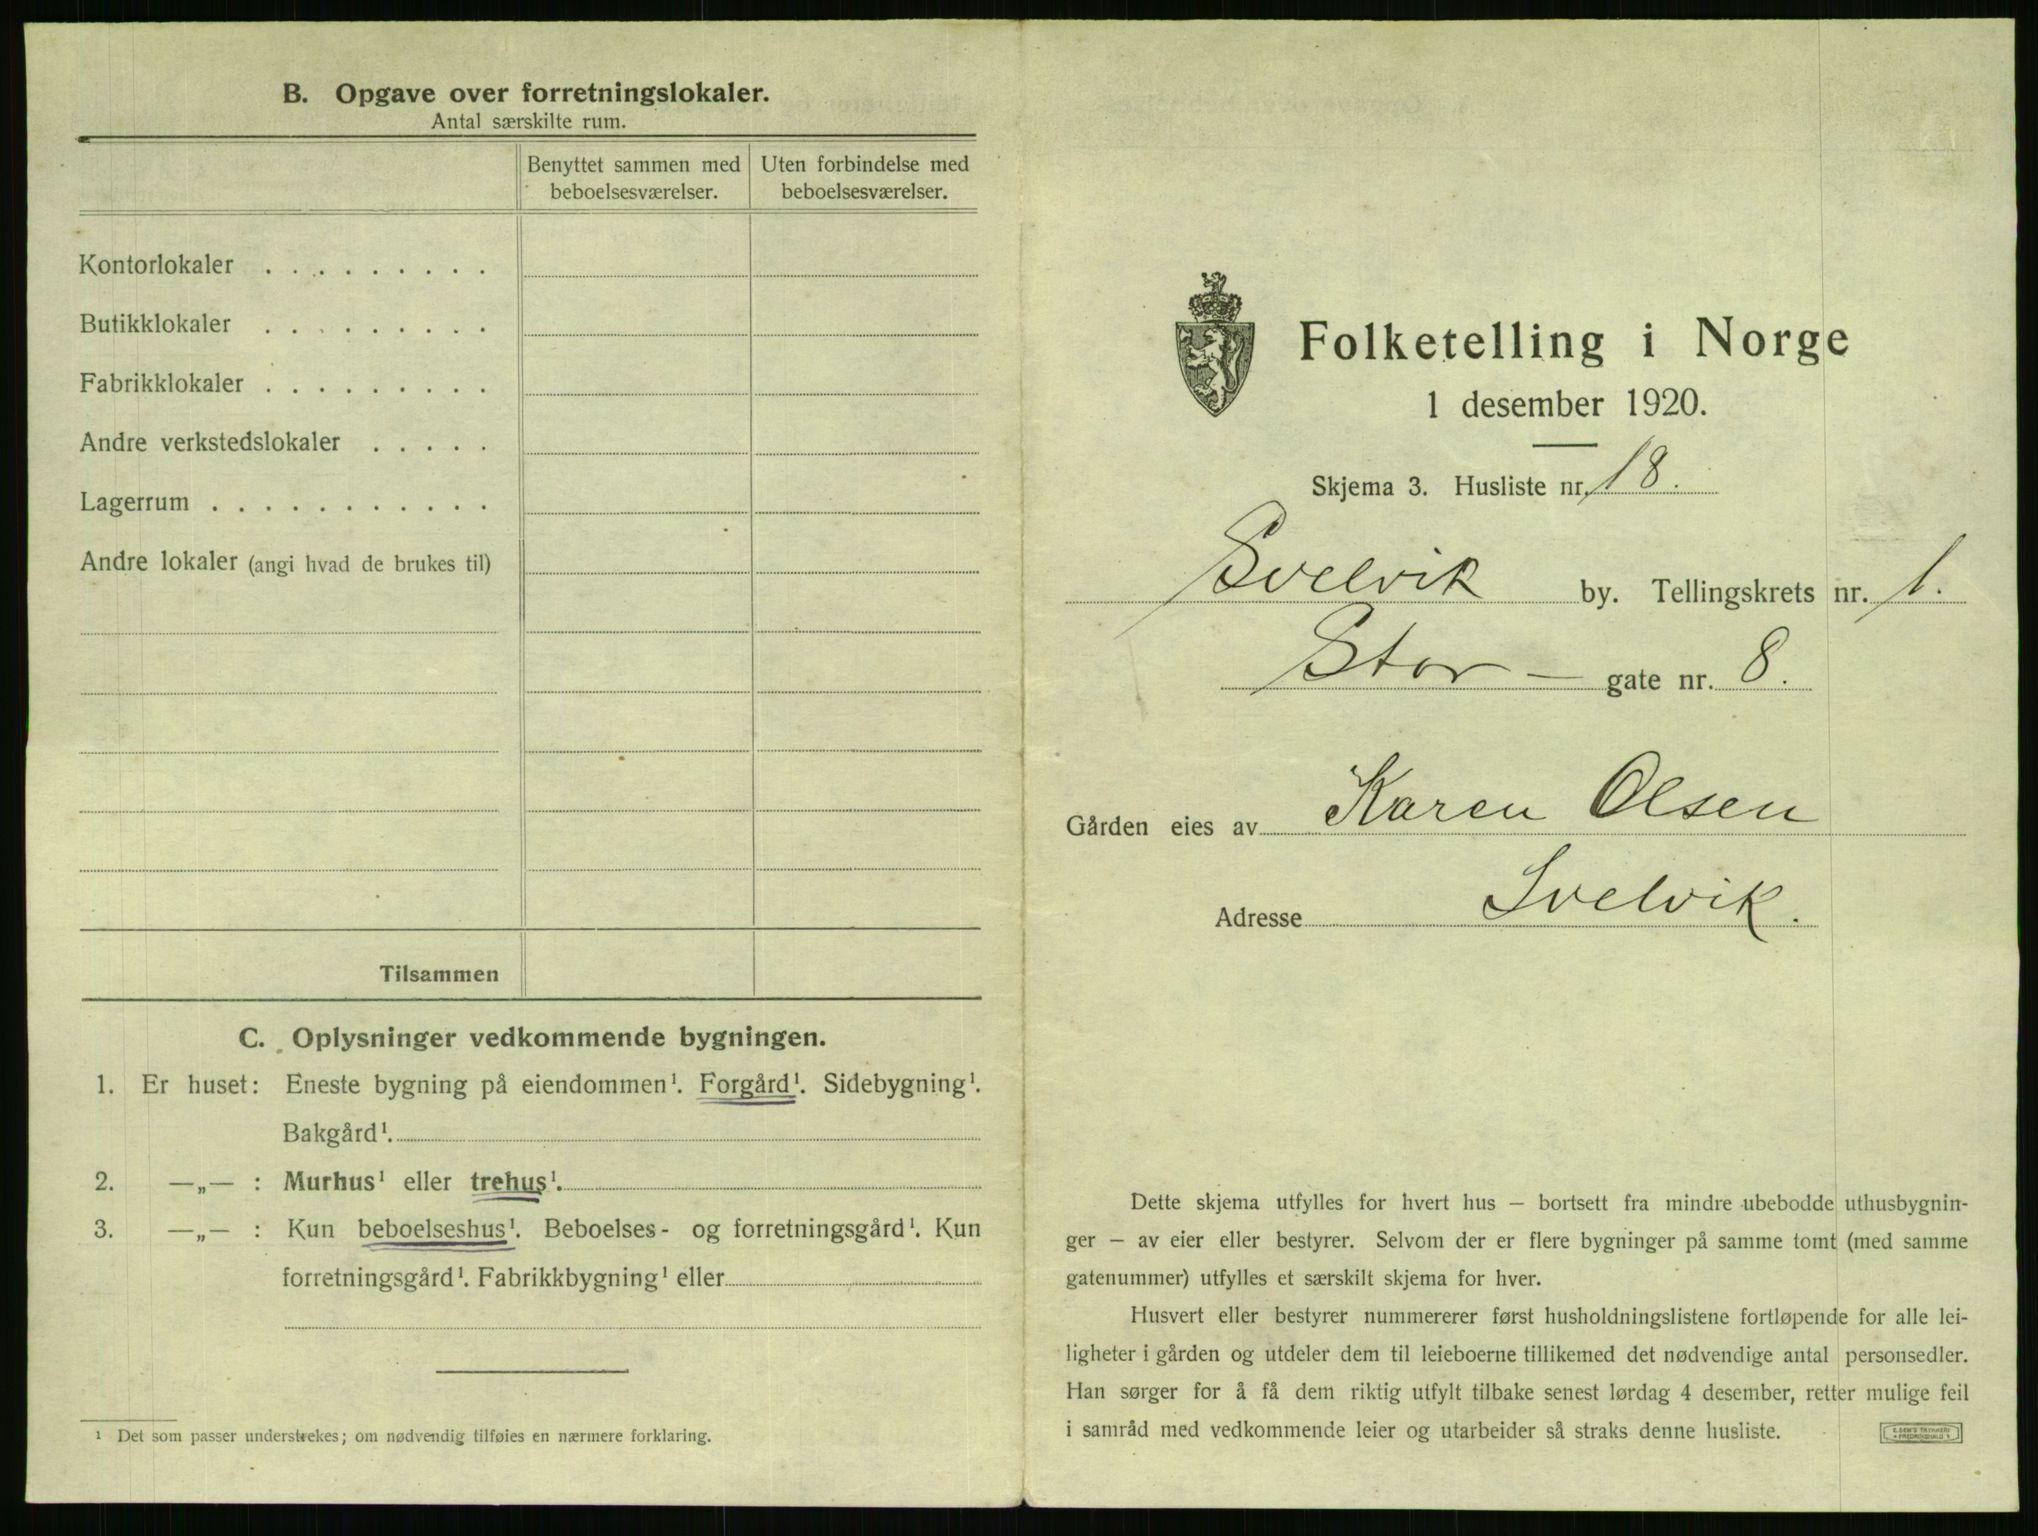 B. Opgave over forretningslokaler.
Antal særskilte rum.
Benyttet sammen med beboelsesværelser.
Uten forbindelse med beboelsesværelser.
Kontorlokaler . . . . . . . . .
Butikklokaler . . . . . . . . .
Fabrikklokaler . . . . . . . . .
Andre verkstedslokaler . . . . .
Lagerrum . . . . . . . . . . .
Andre lokaler (angi hvad de brukes til)
Tilsammen
C. Oplysninger vedkommende bygningen.
1. Er huset: Eneste bygning på eiendommen¹. Forgård¹. Sidebygning¹.
Bakgård¹.
2. —„— : Murhus¹ eller trehus¹.
3. —„— : Kun beboelseshus¹. Beboelses- og forretningsgård¹. Kun
forretningsgård¹. Fabrikkbygning¹ eller
¹ Det som passer understrekes; om nødvendig tilføies en nærmere forklaring.
Folketelling i Norge
1 desember 1920.
Skjema 3. Husliste nr. 18.
Svelvik by. Tellingskrets nr. 1.
Stor — gate nr. 8.
Gården eies av Karen Olsen
Adresse Svelvik.
Dette skjema utfylles for hvert hus — bortsett fra mindre ubebodde uthusbygnin-
ger — av eier eller bestyrer. Selvom der er flere bygninger på samme tomt (med samme
gatenummer) utfylles et særskilt skjema for hver.
Husvert eller bestyrer nummererer først husholdningslistene fortløpende for alle lei-
ligheter i gården og utdeler dem til leieboerne tillikemed det nødvendige antal personsedler.
Han sørger for å få dem riktig utfylt tilbake senest lørdag 4 desember, retter mulige feil
i samråd med vedkommende leier og utarbeider så straks denne husliste.